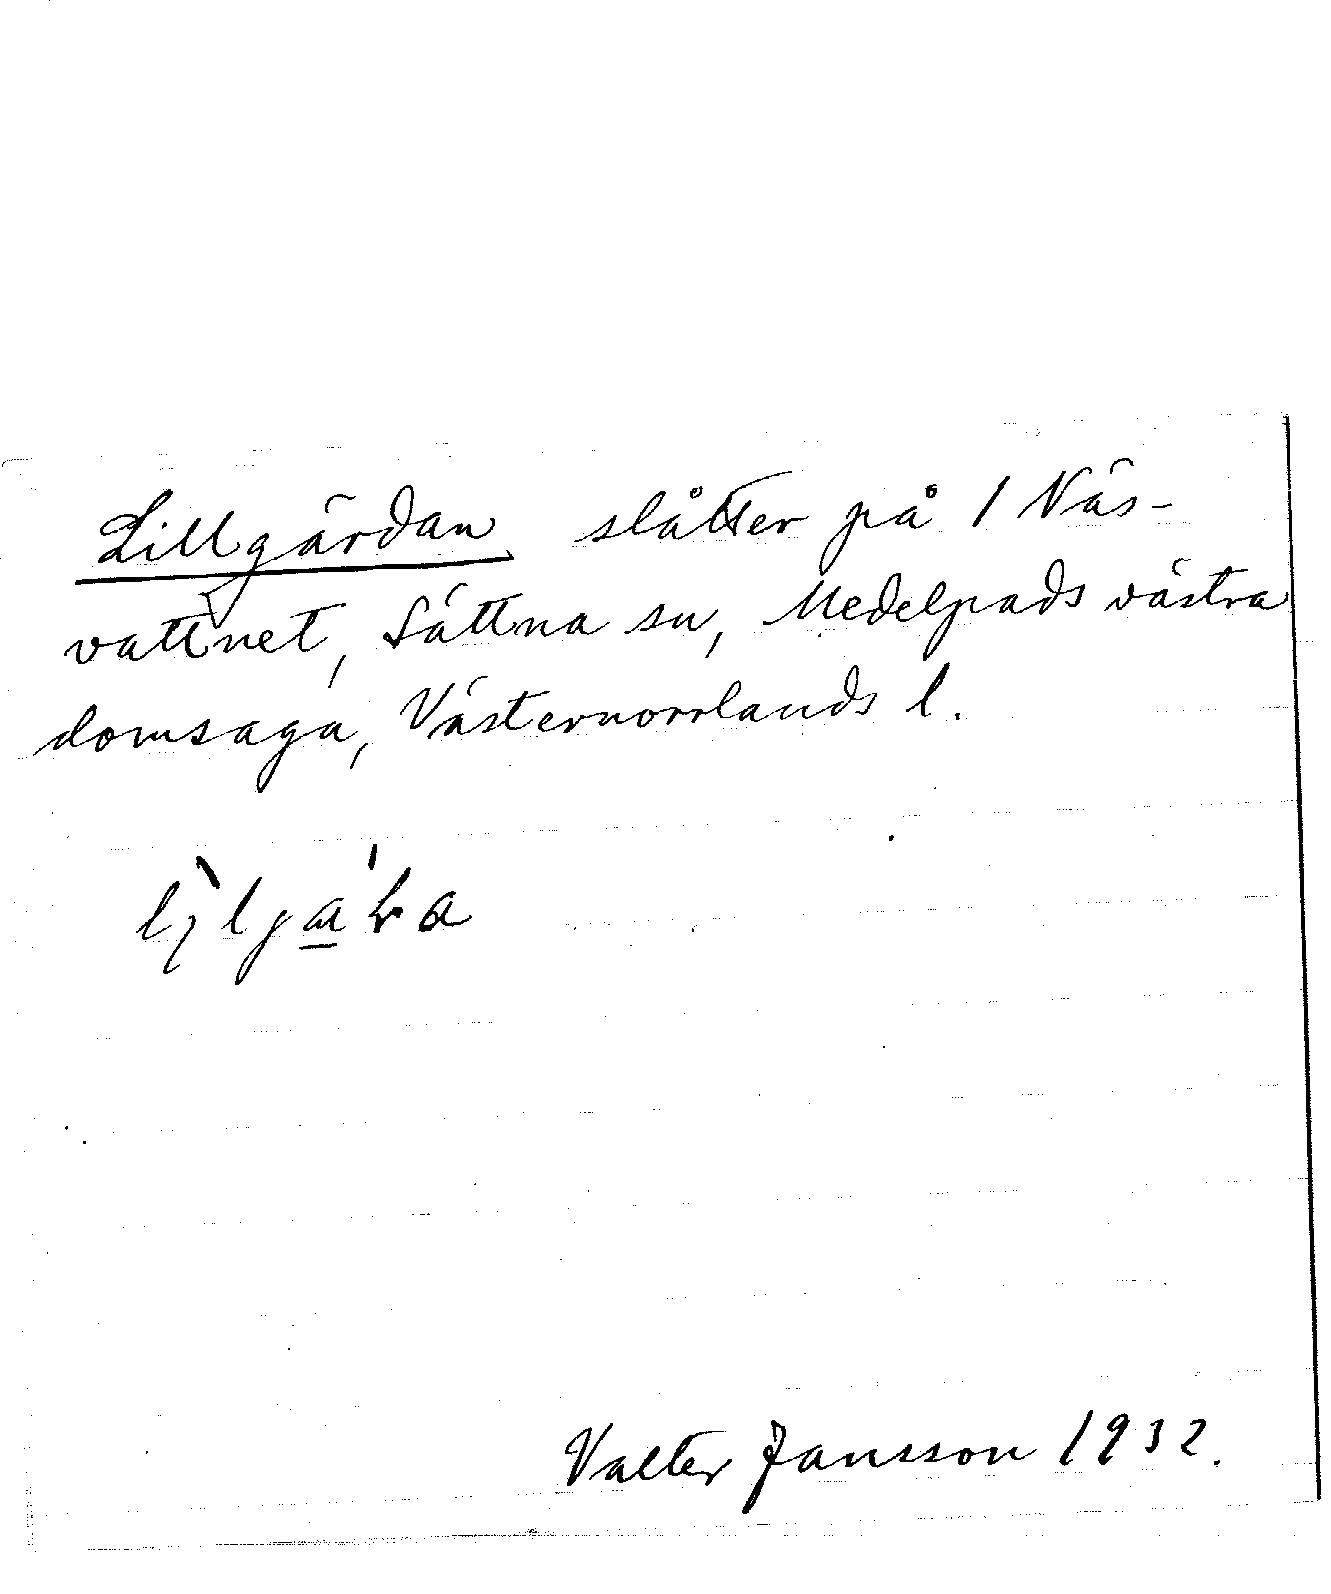 Lillgärdan slåtter på 1 Näs-
vattnet, Sättna sn, Medelpads västra
domsaga, Västernorrlands l.
Valter Jansson 1932.